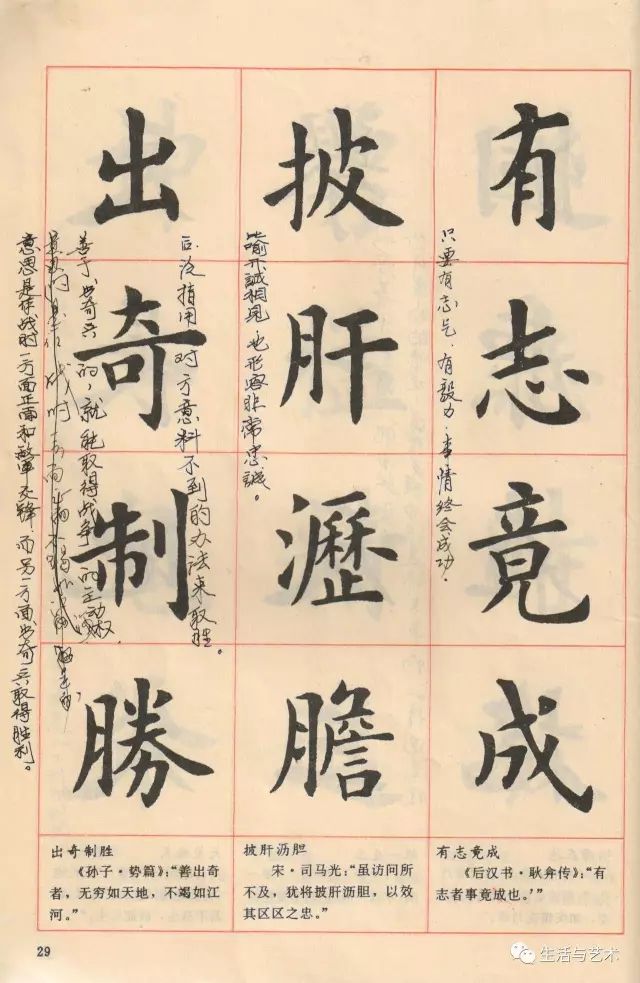 有志竟成
披肝瀝膽
出奇制勝
只要有志气，有毅力，事情终会成功．
喻开誠相見，也形容非常忠誠。
后泛指用对方意料不到的办法来取胜。
善于出奇兵的，就能取得战争的主动权
意思是作战时一方面正面和敌军交锋而另一方面出奇兵取得胜利。
出奇制胜
《孙子·势篇》：“善出奇
者，无穷如天地，不竭如江
河。”
披肝沥胆
宋·司马光：“虽访问所
不及，犹将披肝沥胆，以效
其区区之忠。”
有志竟成
《后汉书·耿弇传》：“有
志者事竟成也。’”
29
生活与艺术